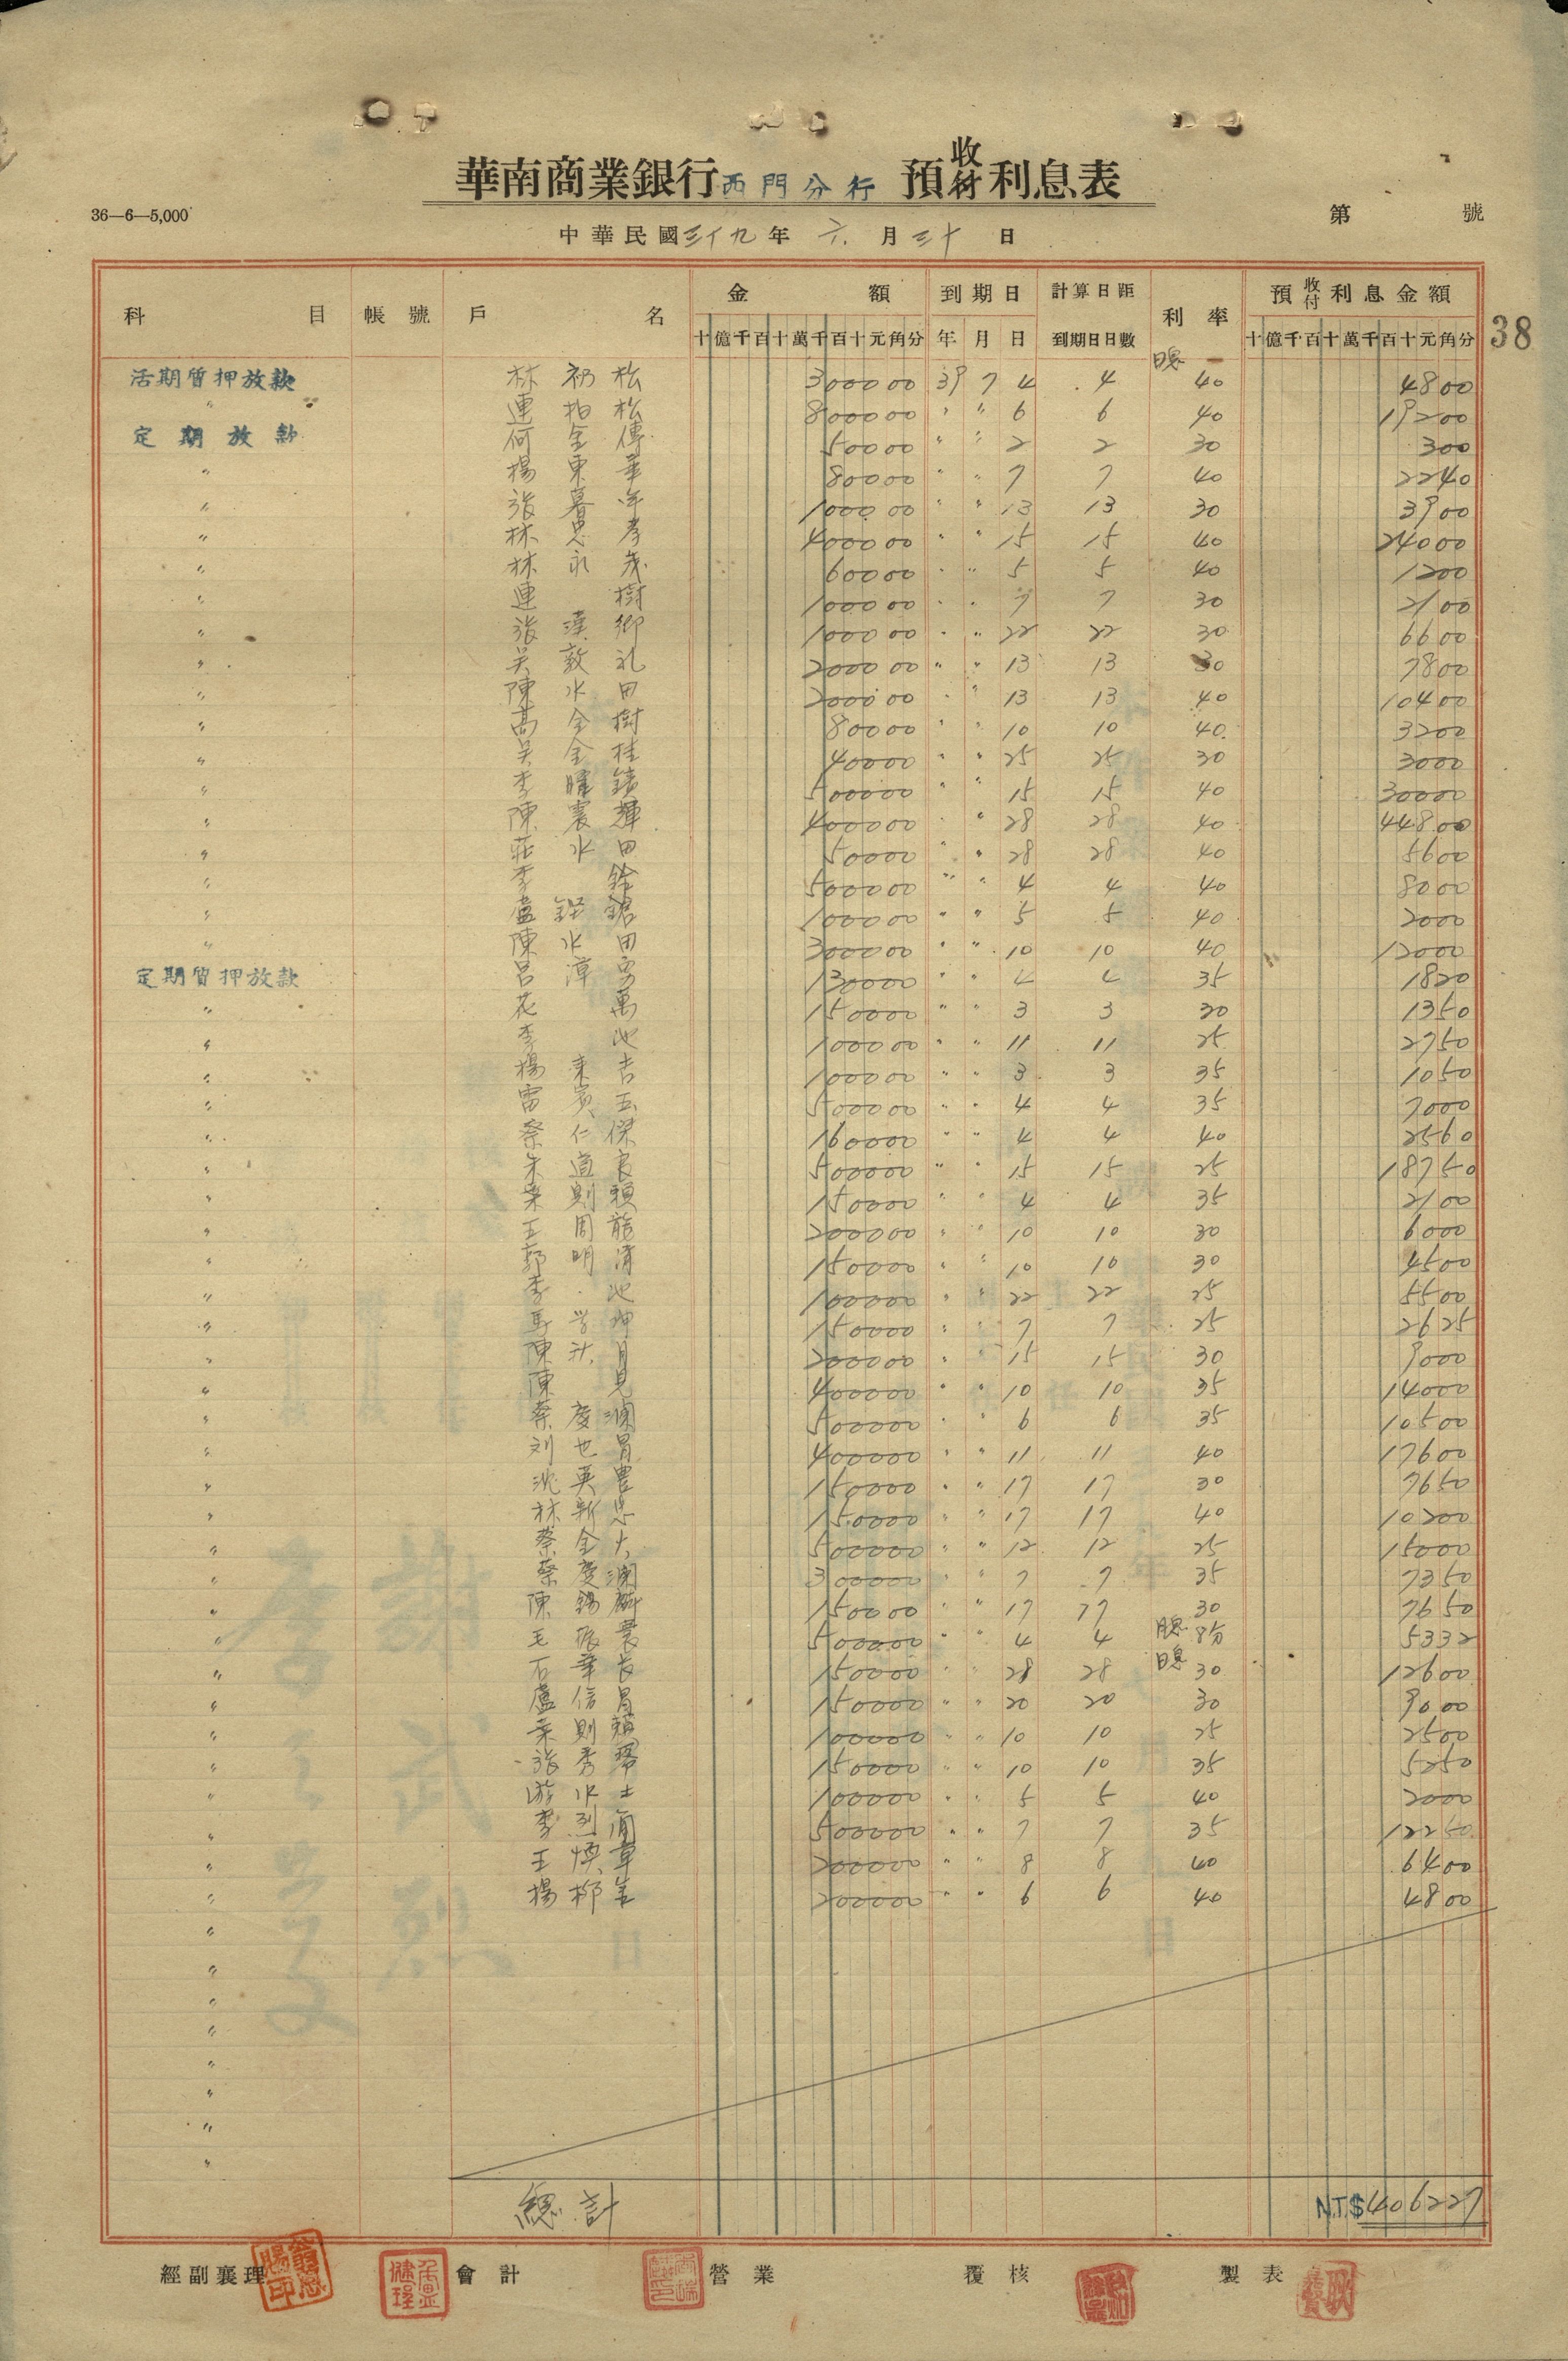 華南商業銀行西門分行 預收付利息表
36—6—5,000
第 號
中華民國三十九年 六月 三十日
38
科目 帳號 戶名 金額 到期日 計算日距到期日日數 利率 預收付利息金額
十億千百十萬千百十元角分 年 月 日 十億千百十萬千百十元角分
活期質押放款 林初松 300000 39 7 4 4 日息 40 4800
〃 連柏松 800000 〃 〃 6 6 40 19200
定期放款 何金傳 50000 〃 〃 2 2 30 300
〃 楊東華 80000 〃 〃 7 7 40 2240
〃 張暮年 100000 〃 〃 13 13 30 3900
〃 林思孝 400000 〃 〃 15 15 40 24000
〃 林永茂 60000 〃 〃 5 5 40 1200
〃 連樹 100000 〃 〃 7 7 30 2100
〃 張漢卿 100000 〃 〃 22 22 30 6600
〃 吳敦礼 200000 〃 〃 13 13 30 7800
〃 陳水田 200000 〃 〃 13 13 40 10400
〃 高全樹 80000 〃 〃 10 10 40 3200
〃 吳金桂 40000 〃 〃 25 25 30 3000
〃 李 500000 〃 〃 15 15 40 30000
〃 陳震輝 400000 〃 〃 28 28 40 44800
〃 莊水田 50000 〃 〃 28 28 40 5600
〃 李 500000 〃 〃 4 4 40 8000
〃 盧 100000 〃 〃 5 5 40 2000
〃 陳水田 300000 〃 〃 10 10 40 12000
定期質押放款 呂漳勇 130000 〃 〃 4 4 35 1820
〃 花萬 150000 〃 〃 3 3 30 1350
〃 李池 100000 〃 〃 11 11 25 2750
〃 楊来吉 100000 〃 〃 3 3 35 1050
〃 雷玉 500000 〃 〃 4 4 35 7000
〃 蔡仁傑 160000 〃 〃 4 4 40 2560
〃 朱道良 500000 〃 〃 15 15 25 18750
〃 葉則頼 150000 〃 〃 4 4 35 2100
〃 王周龍 200000 〃 〃 10 10 30 6000
〃 郭明清 150000 〃 〃 10 10 30 4500
〃 李池 100000 〃 〃 22 22 25 5500
〃 馬学坤 150000 〃 〃 7 7 25 2625
〃 陳秋月 200000 〃 〃 15 15 30 9000
〃 陳見 400000 〃 〃 10 10 35 14000
〃 蔡慶瀾 500000 〃 〃 6 6 35 10500
〃 刘也胃 400000 〃 〃 11 11 40 17600
〃 沈英豊 150000 〃 〃 17 17 30 7650
〃 林新思 150000 〃 〃 17 17 40 10200
〃 蔡金火 500000 〃 〃 12 12 25 15000
〃 蔡慶瀾 300000 〃 〃 7 7 35 7350
〃 陳錫麟 150000 〃 〃 17 17 30 7650
〃 毛振寰 500000 〃 〃 4 4 月息 8分 5332
〃 石華長 150000 〃 〃 28 28 日息 30 12600
〃 盧信昌 150000 〃 〃 20 20 30 9000
〃 葉則頼 100000 〃 〃 10 10 25 2500
〃 張秀琴 150000 〃 〃 10 10 35 5250
〃 游水土 100000 〃 〃 5 5 40 2000
〃 李烈 500000 〃 〃 7 7 35 12250
〃 王章 200000 〃 〃 8 8 40 6400
〃 楊柳 200000 〃 〃 6 6 40 4800
〃
〃
〃
〃
〃
〃
〃
〃
總計 N.T.$406227
經副襄理 會計 營業 覆核 製表